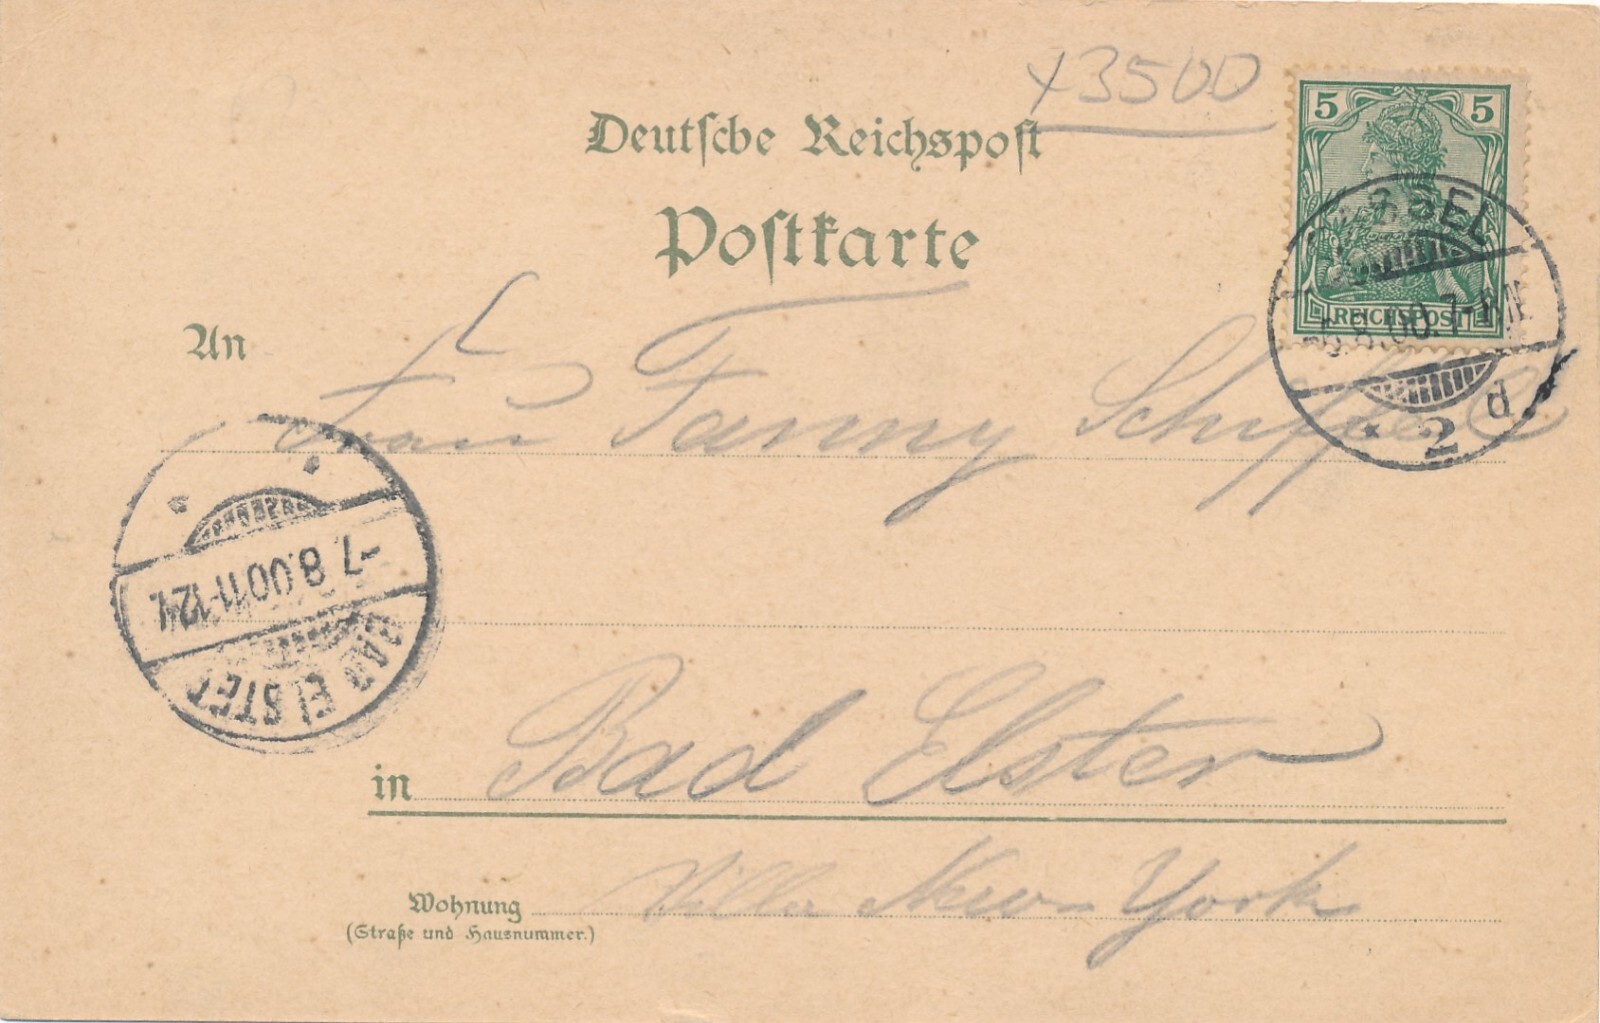 x3500
Deutsche Reichspost
Postkarte
5 5
REICHSPOST
8.00.7-
* 2 d
An
Frau Fanny
-7.8.00 11-12V.
BAD ELSTER
in Bad Elster
Wohnung Villa New-York
(Straße und Hausnummer.)